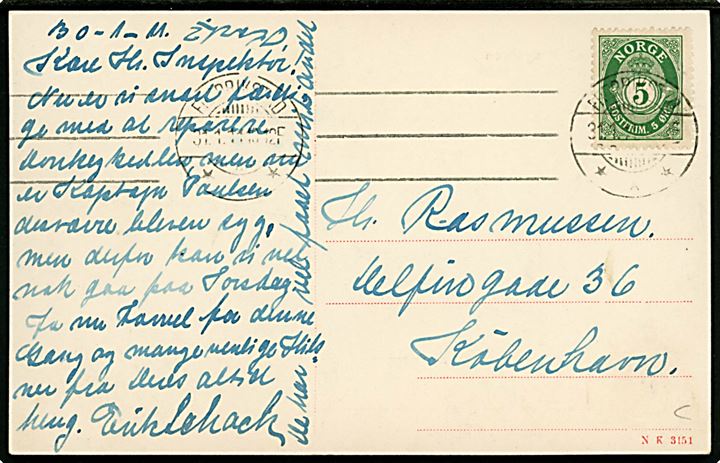 30-1-11.
Kære Hr. Inspektør!
Nu er vi snart færdi
ge med at reparere
donkeykedlen men nu
er Kaptajn Paulsen
desværre bleven syg,
men derfor kan vi vel
nok gaa paa Torsdag
Ja nu Farvel for denne
Gang og mange venlige Hils
ner fra Deres altid
heng. Erik Schack
De har vel faaet
NORGE
5
POSTFRIM. 5 ØRE
Hr. Rasmussen.
Delfingade 36
København.
N K 3151